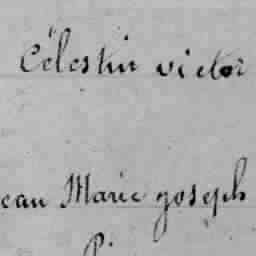 Célestin victor
ean Marie joseph